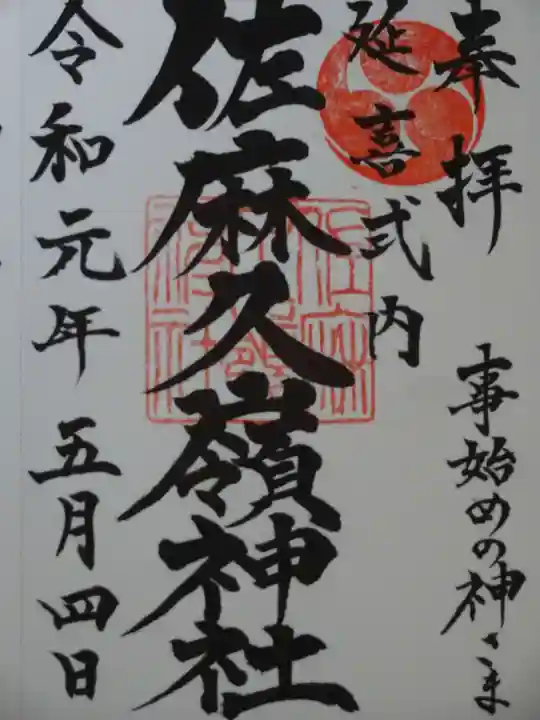 奉拝
事始めの神さま
延喜式内
佐麻久嶺神社
令和元年五月四日